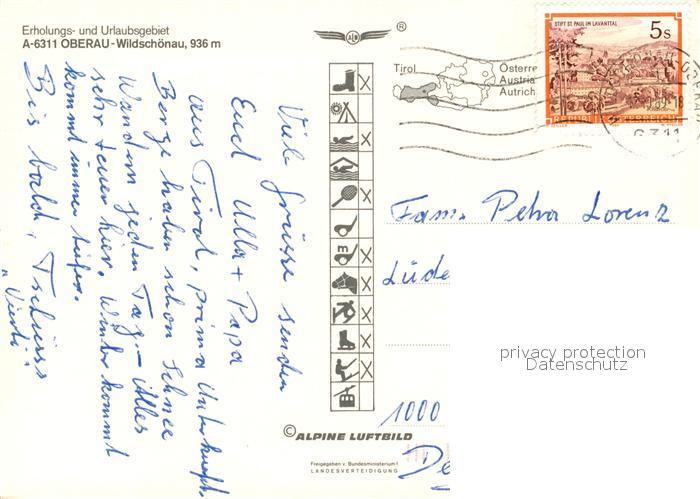 Erholungs- und Urlaubsgebiet
A-6311 OBERAU-Wildschönau, 936 m
Viele Grüsse senden
Euch Ulla + Papa
aus Tirol, prima Unterkunft.
Berge haben schon Schnee
Wandern jeden Tag – Alles
sehr teuer hier. Winter kommt
kommt immer tiefer.
Bis bald, Tschüss
®
m
© ALPINE LUFTBILD
Freigegeben v. Bundesministerium f.
LANDESVERTEIDIGUNG
Tirol
Österre
Austria
Autrich
STIFT ST. PAUL IM LAVANTTAL
5s
REPUBLIK ÖSTERREICH
6311
Fam. Petra Lorenz
Lüde
1000
privacy protection
Datenschutz